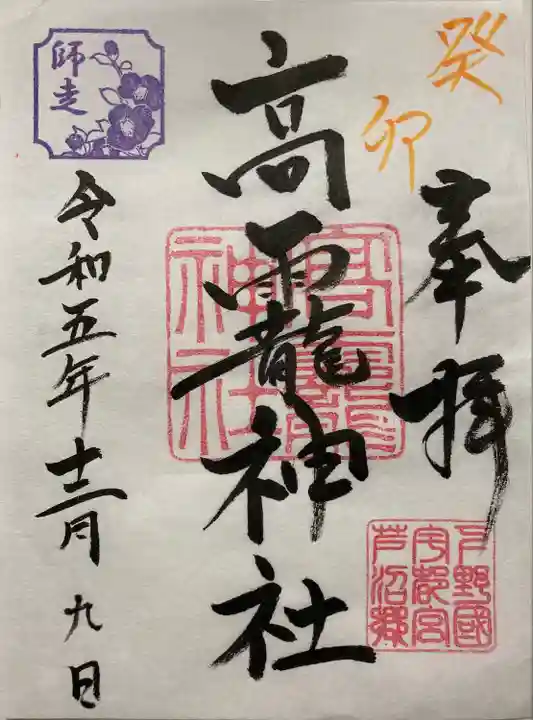 癸
卯
奉拝
下野國
宇都宮
芦沼郷
高龗神社
高龗神社
師走
令和五年十二月九日